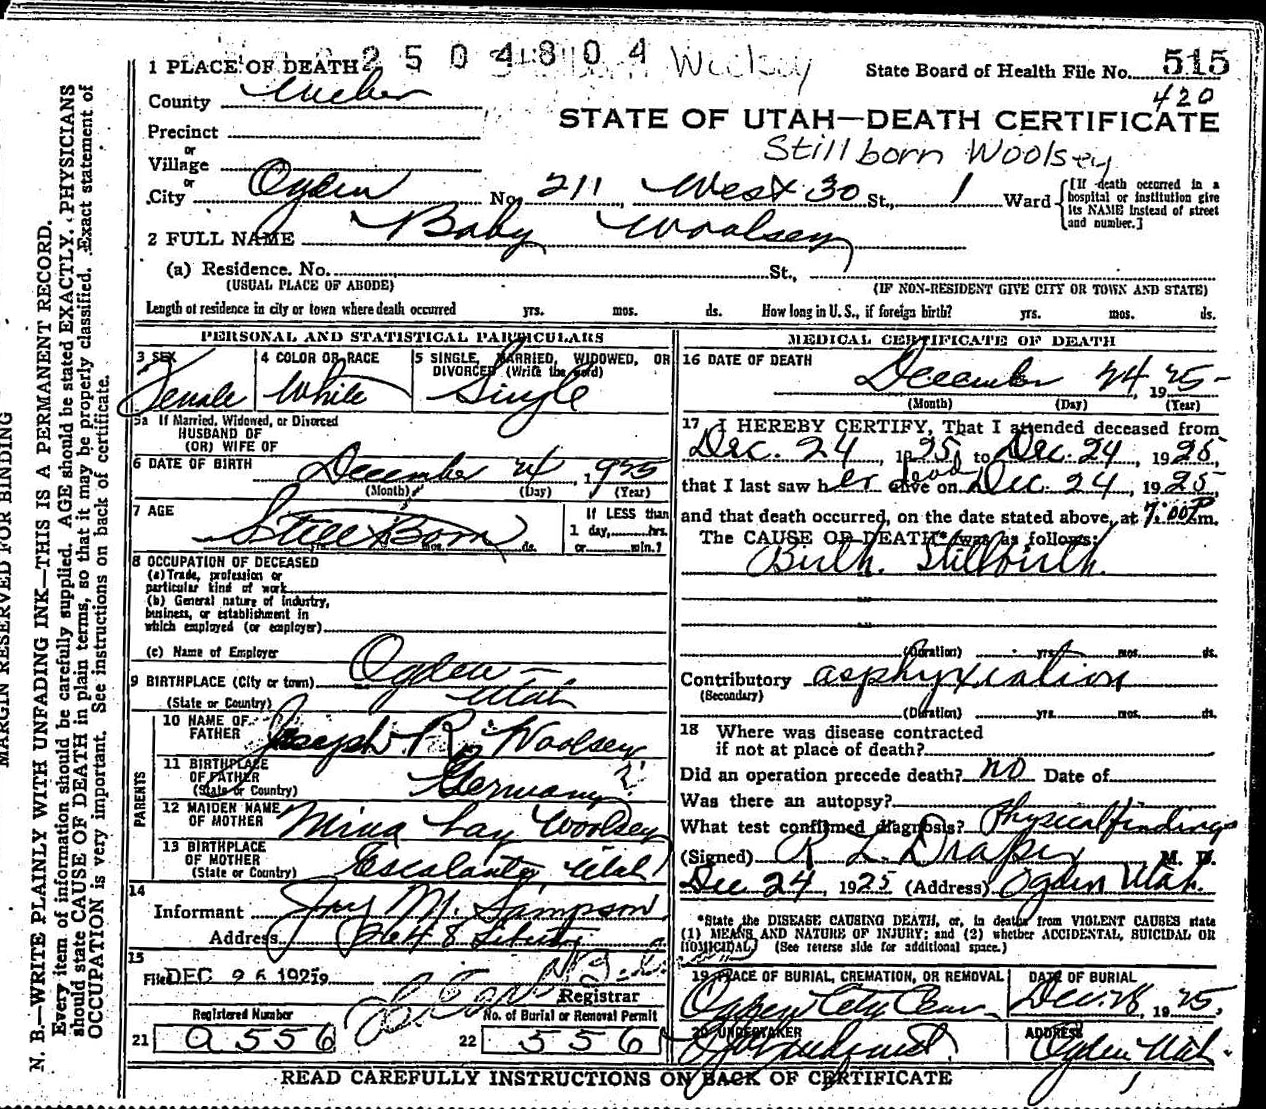 2504804 Woolsey 515
1 PLACE OF DEATH State Board of Health File No.
County Weber 420
STATE OF UTAH—DEATH CERTIFICATE
Precinct
Stillborn Woolsey
or
Village
or
City Ogden No. 211 West 30 St., 1 Ward [If death occurred in a hospital or institution give its NAME instead of street and number.]
2 FULL NAME Baby Woolsey
(a) Residence. No. St.,
(USUAL PLACE OF ABODE) (IF NON-RESIDENT GIVE CITY OR TOWN AND STATE)
Length of residence in city or town where death occurred yrs. mos. ds. How long in U. S., if foreign birth? yrs. mos. ds.
PERSONAL AND STATISTICAL PARTICULARS
3 SEX 4 COLOR OR RACE 5 SINGLE, MARRIED, WIDOWED, OR DIVORCED (Write the word)
Female White Single
5a If Married, Widowed, or Divorced
HUSBAND OF
(OR) WIFE OF
6 DATE OF BIRTH December 24 1925
(Month) (Day) (Year)
7 AGE If LESS than
Still Born 1 day, hrs.
yrs. mos. ds. or min.?
8 OCCUPATION OF DECEASED
(a) Trade, profession or
particular kind of work
(b) General nature of industry,
business, or establishment in
which employed (or employer)
(c) Name of Employer
9 BIRTHPLACE (City or town) Ogden
(State or Country) Utah
PARENTS
10 NAME OF FATHER Joseph R. Woolsey
11 BIRTHPLACE OF FATHER (State or Country) Germany ?
12 MAIDEN NAME OF MOTHER Mina Lay Woolsey
13 BIRTHPLACE OF MOTHER (State or Country) Escalante Utah
14
Informant Joy M. Sampson
Address
15
Filed DEC 26 1925 19
Registrar
Registered Number No. of Burial or Removal Permit
21 a556 22 556
MEDICAL CERTIFICATE OF DEATH
16 DATE OF DEATH
December 24 1925
(Month) (Day) (Year)
17 I HEREBY CERTIFY, That I attended deceased from
Dec. 24, 1925, to Dec. 24, 1925,
that I last saw her alive dead on Dec. 24, 1925,
and that death occurred, on the date stated above, at 7:00 P m.
The CAUSE OF DEATH* was as follows:
Birth. Stillbirth.
(Duration) yrs. mos. ds.
Contributory asphyxiation
(Secondary)
(Duration) yrs. mos. ds.
18 Where was disease contracted
if not at place of death?
Did an operation precede death? no Date of
Was there an autopsy?
What test confirmed diagnosis? Physical findings
(Signed) R L Draper M. D.
Dec 24, 1925 (Address) Ogden Utah.
*State the DISEASE CAUSING DEATH, or, in deaths from VIOLENT CAUSES state
(1) MEANS AND NATURE OF INJURY; and (2) whether ACCIDENTAL, SUICIDAL OR
HOMICIDAL. (See reverse side for additional space.)
19 PLACE OF BURIAL, CREMATION, OR REMOVAL DATE OF BURIAL
Ogden City Cem. Dec. 28, 1925,
20 UNDERTAKER ADDRESS
Ogden, Utah.
READ CAREFULLY INSTRUCTIONS ON BACK OF CERTIFICATE
MARGIN RESERVED FOR BINDING
N. B.—WRITE PLAINLY WITH UNFADING INK—THIS IS A PERMANENT RECORD.
Every item of information should be carefully supplied. AGE should be stated EXACTLY. PHYSICIANS
should state CAUSE OF DEATH in plain terms, so that it may be properly classified. Exact statement of
OCCUPATION is very important. See instructions on back of certificate.